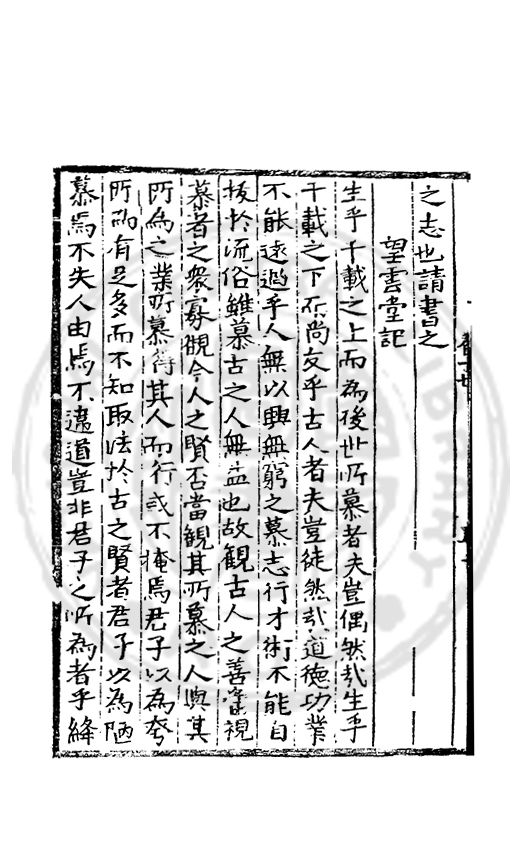 之志也請書之
望雲堂記
生乎千載之上而為後世所慕者夫豈偶然哉生乎
千載之下而尚友乎古人者夫豈徒然哉道德功業
不能遠過乎人無以興無窮之慕志行才術不能自
拔於流俗雖慕古之人無益也故觀古人之善當視
慕者之衆寡觀今人之賢否當觀其所慕之人與其
所為之業所慕得其人而行或不掩焉君子以為夸
所為有足多而不知取法於古之賢者君子以為陋
慕焉不失人由焉不違道豈非君子之所為者乎絳